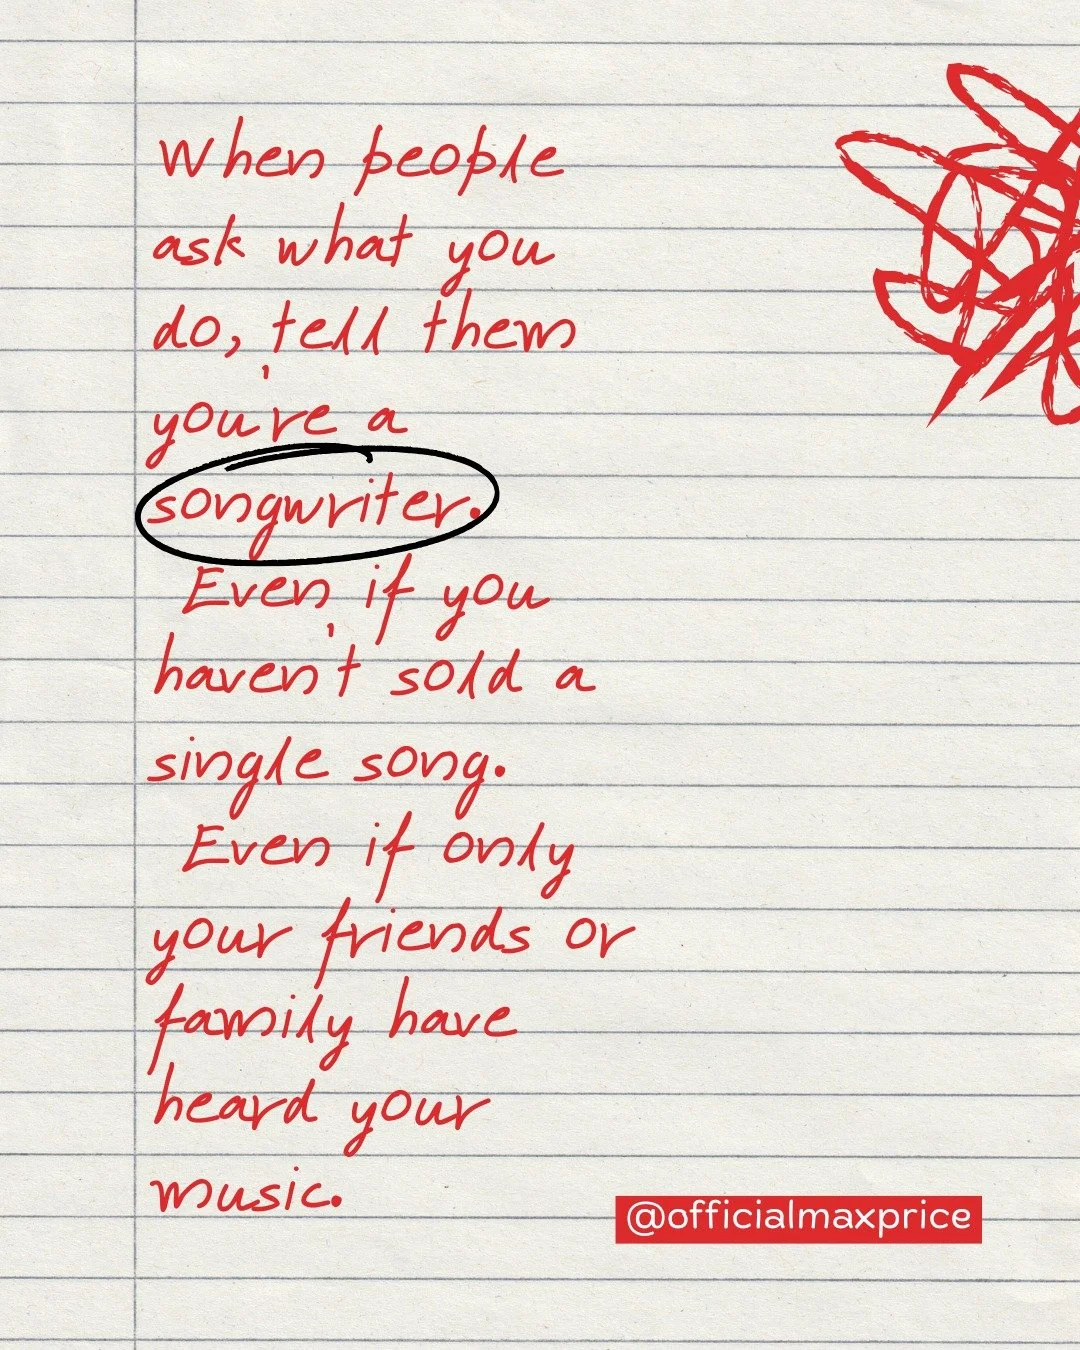 When people
ask what you
do, tell them
you're a
songwriter.
Even if you
haven't sold a
single song.
Even if only
your friends or
family have
heard your
music.
@officialmaxprice